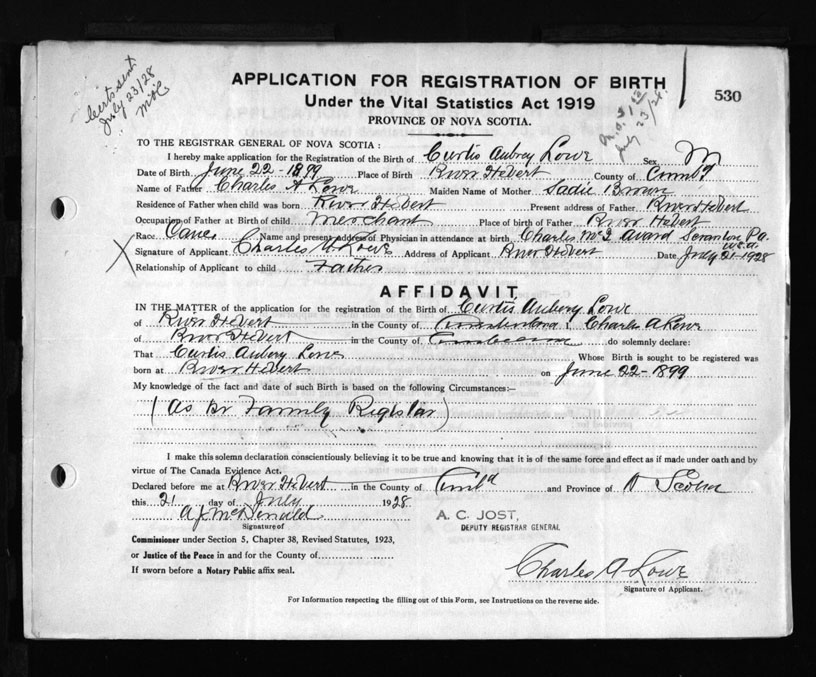 Certs sent
July 23/28
530
APPLICATION FOR REGISTRATION OF BIRTH
Under the Vital Statistics Act 1919
PROVINCE OF NOVA SCOTIA.
July 23/28
TO THE REGISTRAR GENERAL OF NOVA SCOTIA:
I hereby make application for the Registration of the Birth of Curtis Aubrey Lowe Sex M
Date of Birth June 22-1899 Place of Birth River Hebert County of Cumb'd
Name of Father Charles A Lowe Maiden Name of Mother Sadie Brown
Residence of Father when child was born River Hebert Present address of Father River Hebert
Occupation of Father at Birth of child Merchant Place of birth of Father River Hebert
Race Name and present address of Physician in attendance at birth Charles Avard Scranton Pa. U.S.A.
Signature of Applicant Charles A Lowe Address of Applicant River Hebert Date July 21-1928
Relationship of Applicant to child Father
AFFIDAVIT
IN THE MATTER of the application for the registration of the Birth of Curtis Aubery Lowe
of River Hebert in the County of Cumberland I, Charles A Lowe
of River Hebert in the County of Cumberland do solemnly declare:
That Curtis Aubery Lowe Whose Birth is sought to be registered was
born at River Hebert on June 22-1899
My knowledge of the fact and date of such Birth is based on the following Circumstances:—
(As Per Family Register)
I make this solemn declaration conscientiously believing it to be true and knowing that it is of the same force and effect as if made under oath and by
virtue of The Canada Evidence Act.
Declared before me at River Hebert in the County of Cumb'd and Province of N Scotia
this 21 day of July 1928
A J McDonald
A. C. JOST,
DEPUTY REGISTRAR GENERAL
Signature of
Commissioner under Section 5, Chapter 38, Revised Statutes, 1923,
or Justice of the Peace in and for the County of
If sworn before a Notary Public affix seal.
Charles A Lowe
Signature of Applicant.
For Information respecting the filling out of this Form, see Instructions on the reverse side.